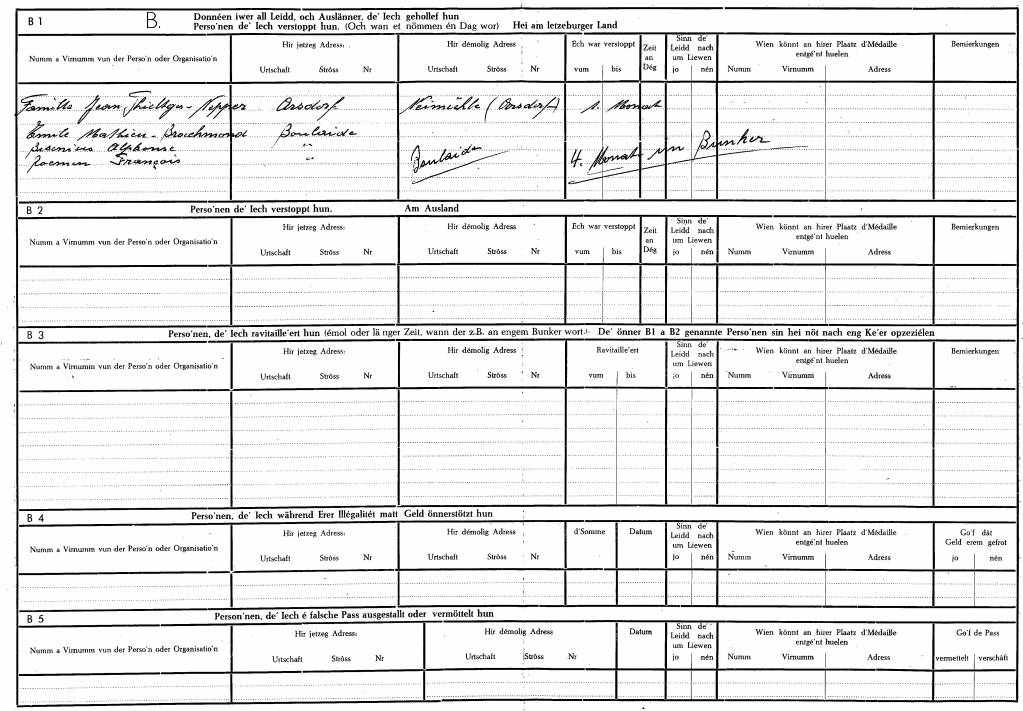 B 1 B. Donnéen iwer all Leidd, och Auslänner, de' Iech gehollef hun
Perso'nen de' Iech verstoppt hun. (Och wan et nömmen én Dag wor) Hei am letzeburger Land
Numm a Virnumm vun der Perso'n oder Organisatio'n
Hir jetzeg Adress:
Urtschaft Ströss Nr
Hir démolig Adress
Urtschaft Ströss Nr
Ech war verstoppt
vum bis
Zeit
an
Dég
Sinn de'
Leidd nach
um Liewen
jo nén
Wien könnt an hirer Plaatz d'Médaille
entgé'nt huelen
Numm Virnumm Adress
Bemierkungen
Famille Jean Thielges-Nepper Arsdorf Neimühle (Arsdorf) 1. Monat
Emile Mathieu-Broichmond Boulaide
Alphonse "
François "
Boulaide 4. Monat im Bunker
B 2 Perso'nen de' Iech verstoppt hun. Am Ausland
Numm a Virnumm vun der Perso'n oder Organisatio'n
Hir jetzeg Adress:
Urtschaft Ströss Nr
Hir démolig Adress
Urtschaft Ströss Nr
Ech war verstoppt
vum bis
Zeit
an
Dég
Sinn de'
Leidd nach
um Liewen
jo nén
Wien könnt an hirer Plaatz d'Médaille
entgé'nt huelen
Numm Virnumm Adress
Bemierkungen
B 3 Perso'nen, de' Iech ravitaille'ert hun (émol oder länger Zeit, wann der z.B. an engem Bunker wort.) De' önner B1 a B2 genannte Perso'nen sin hei nöt nach eng Ke'er opzeziélen
Numm a Virnumm vun der Perso'n oder Organisatio'n
Hir jetzeg Adress:
Urtschaft Ströss Nr
Hir démolig Adress
Urtschaft Ströss Nr
Ravitaille'ert
vum bis
Sinn de'
Leidd nach
um Liewen
jo nén
Wien könnt an hirer Plaatz d'Médaille
entgé'nt huelen
Numm Virnumm Adress
Bemierkungen
B 4 Perso'nen, de' Iech während Erer Illégalitét matt Geld önnerstötzt hun
Numm a Virnumm vun der Perso'n oder Organisatio'n
Hir jetzeg Adress:
Urtschaft Ströss Nr
Hir démolig Adress
Urtschaft Ströss Nr
d'Somme
Datum
Sinn de'
Leidd nach
um Liewen
jo nén
Wien könnt an hirer Plaatz d'Médaille
entgé'nt huelen
Numm Virnumm Adress
Go'f dât
Geld erem gefrot
jo nén
B 5 Person'nen, de' Iech é falsche Pass ausgestallt oder vermöttelt hun
Numm a Virnumm vun der Perso'n oder Organisatio'n
Hir jetzeg Adress:
Urtschaft Ströss Nr
Hir démolig Adress
Urtschaft Ströss Nr
Datum
Sinn de'
Leidd nach
um Liewen
jo nén
Wien könnt an hirer Plaatz d'Médaille
entgé'nt huelen
Numm Virnumm Adress
Go'f de Pass
vermettelt verschâft